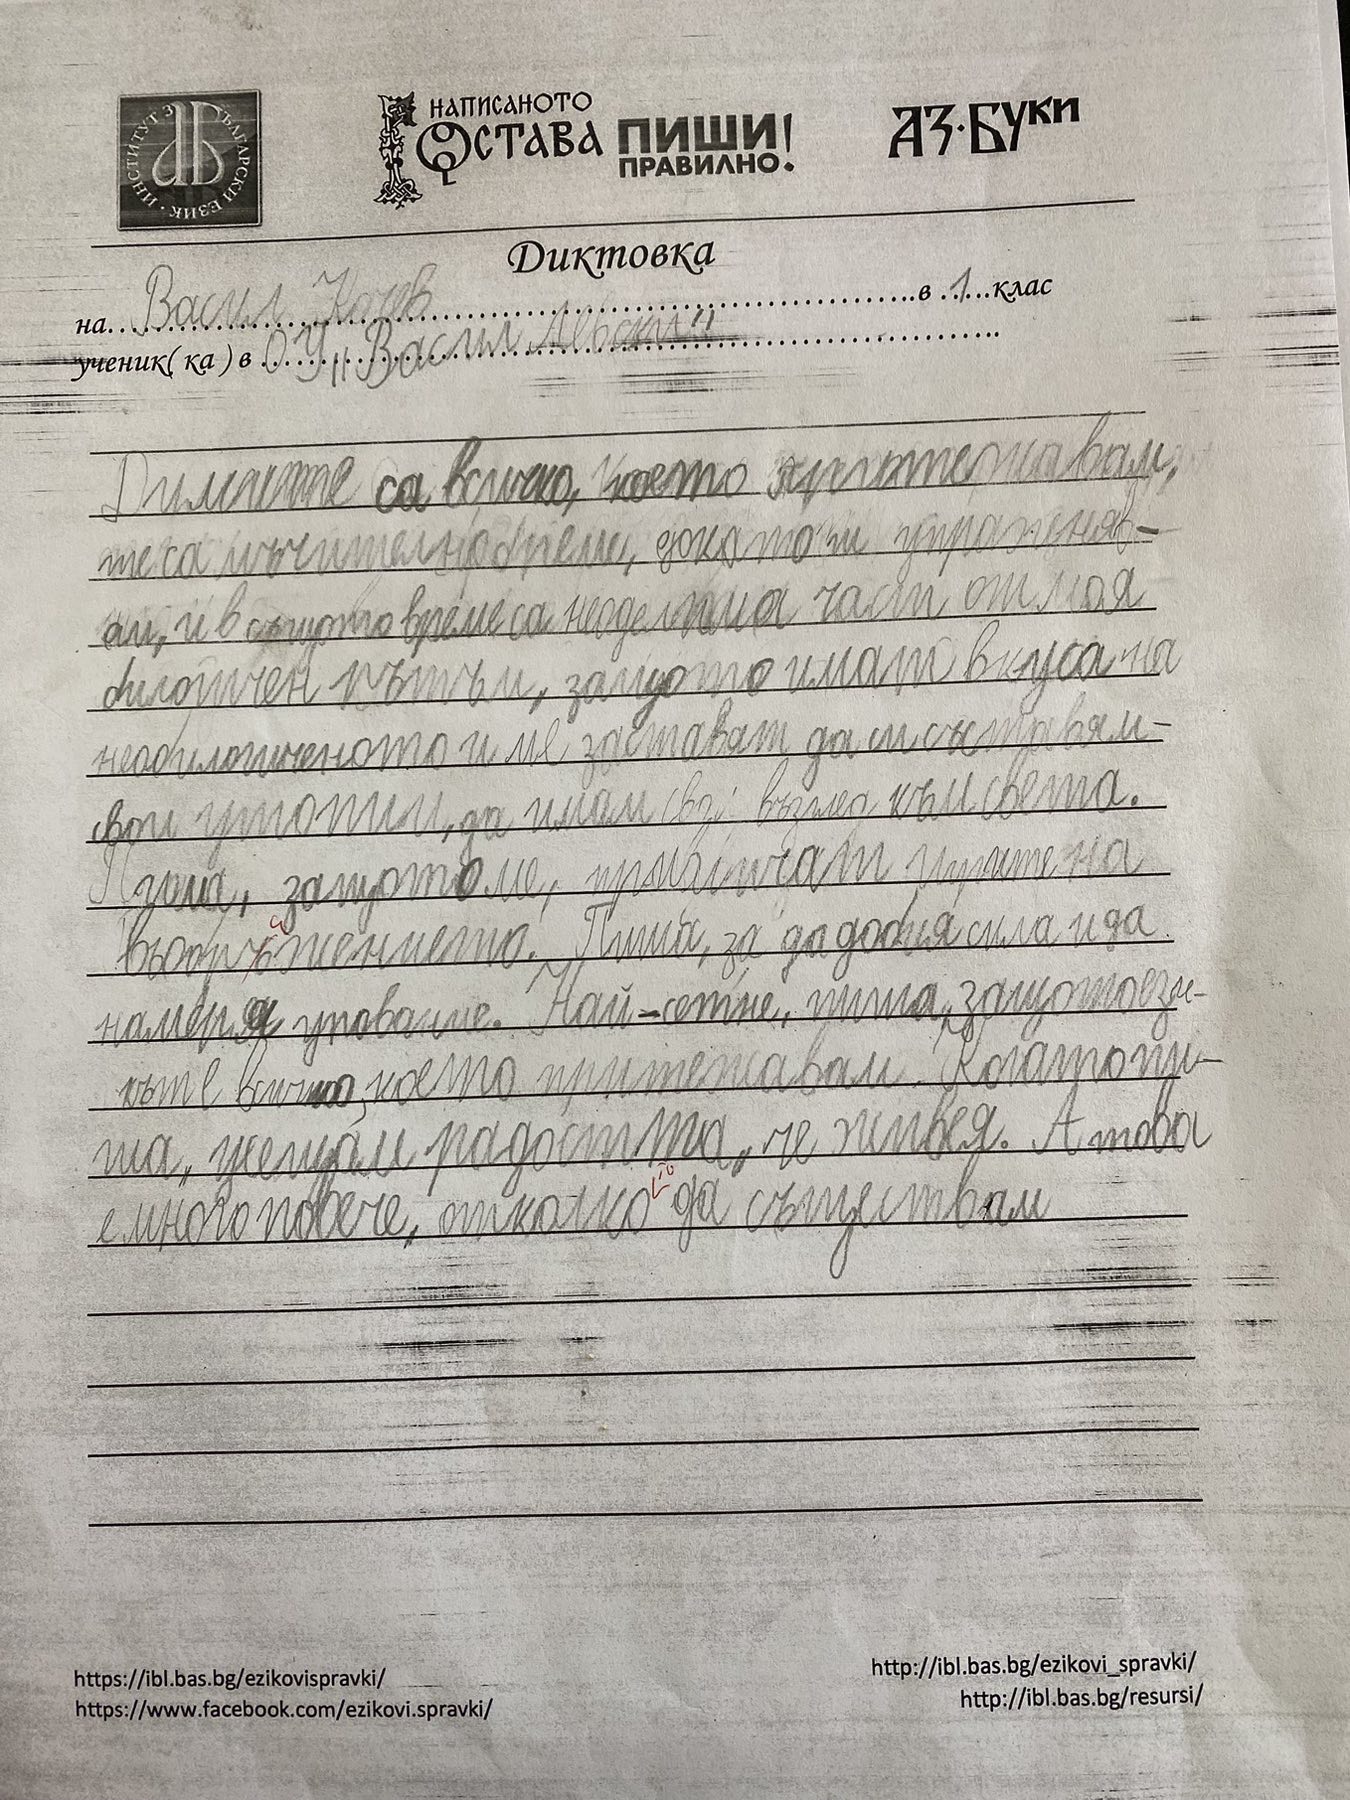 ИНСТИТУТ ЗА БЪЛГАРСКИ ЕЗИК
НАПИСАНОТО
ОСТАВА
ПИШИ
ПРАВИЛНО!
АЗ·БУКИ
Диктовка
на Васил Кочев в 1 клас
ученик(ка) в ОУ „Васил Левски"
са всичко, което притежавам,
те са мъчително време, докато ги упражняв-
ам, и в същото време са неделима част от моя
билогичен път, защото имат вкуса на
необилогичното и ме заставят да си съставям
свои утопии, да имам свой възглед към света.
Пиша, защото ме привличат игрите на
въображението. Пиша, за да добия сила и да
намеря упование. Най-сетне, пиша, защото ези-
кът е всичко, което притежавам. Когато пи-
ша, усещам радостта, че живея. А това
е много повече, отколко да съществам
https://ibl.bas.bg/ezikovispravki/
http://ibl.bas.bg/ezikovi_spravki/
https://www.facebook.com/ezikovi.spravki/
http://ibl.bas.bg/resursi/